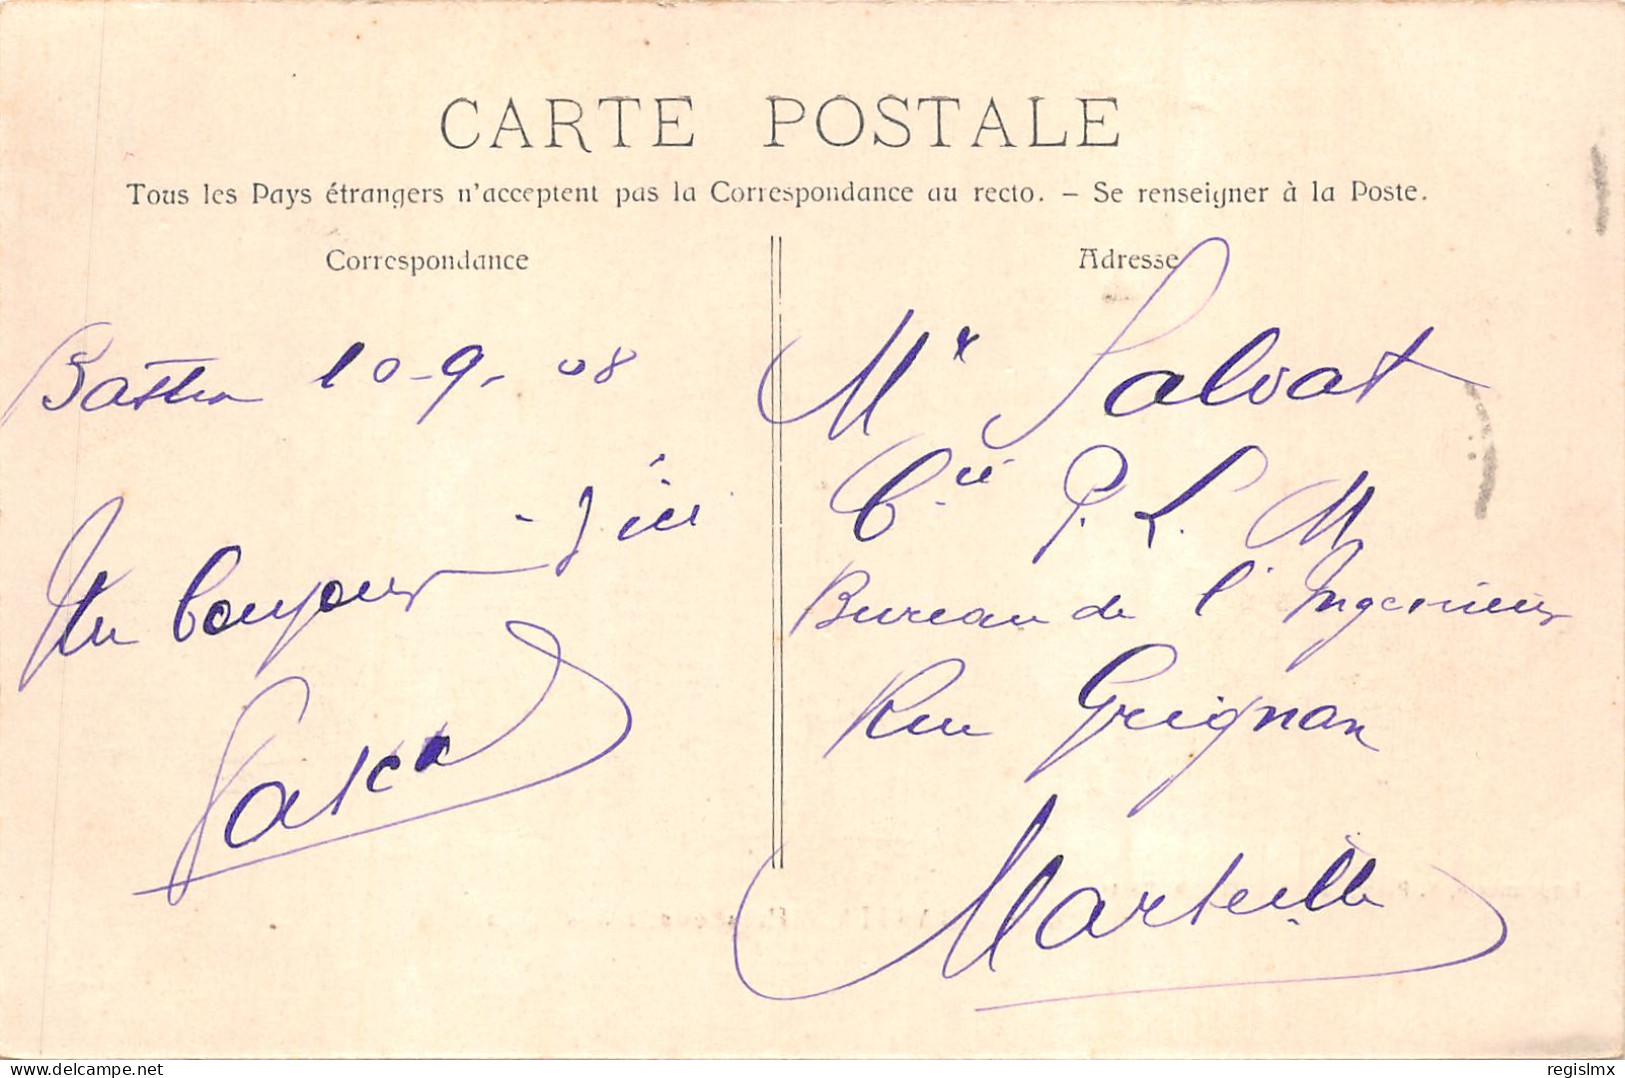 CARTE POSTALE
Tous les Pays étrangers n'acceptent pas la Correspondance au recto. – Se renseigner à la Poste.
Correspondance
Bastia 10-9-08
Un bonjour
Adresse
Mr Salvat
Cie P. L. M
Bureau de l'Ingenieur
Rue Grignan
Marseille
delcampe.net
regislmx